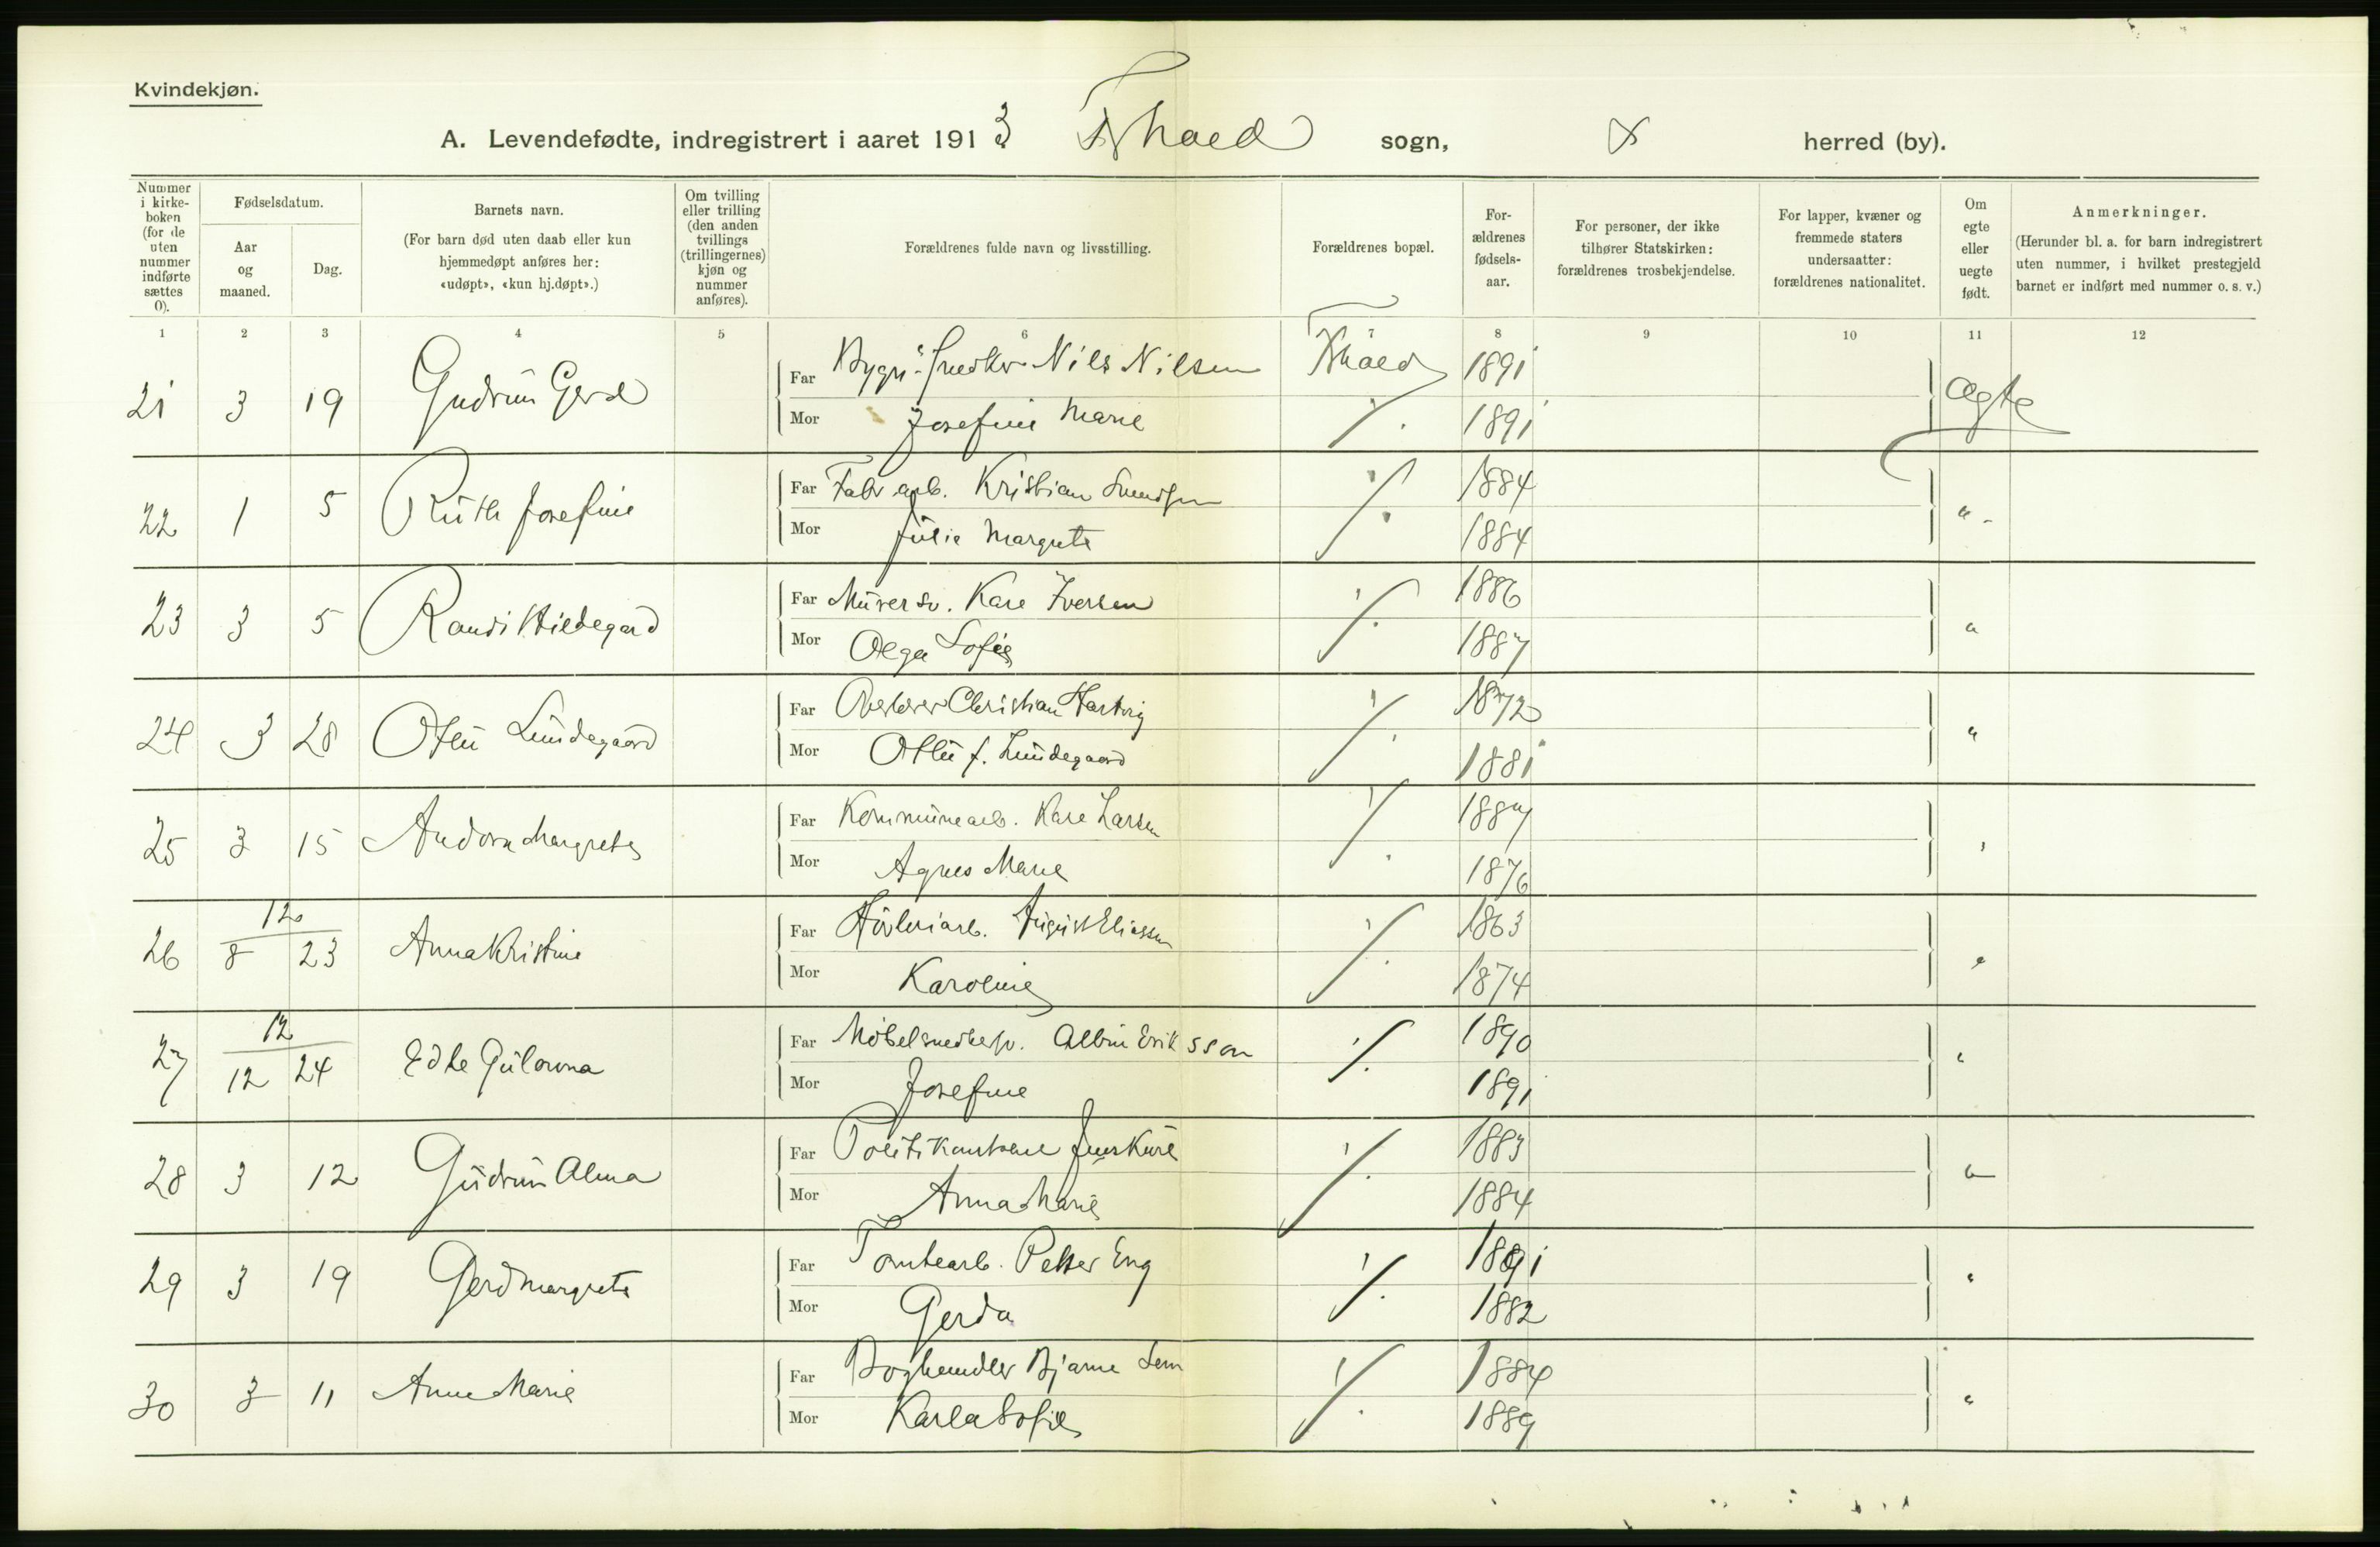 Kvindekjøn.
A. Levendefødte, indregistrert i aaret 1913 Fhald sogn, herred (by).
Nummer i kirke-boken (for de uten nummer indførte sættes 0).
Fødselsdatum.
Aar og maaned.
Dag.
Barnets navn.
(For barn død uten daab eller kun hjemmedøpt anføres her: «udøpt», «kun hj.døpt».)
Om tvilling eller trilling (den anden tvillings (trillingernes) kjøn og nummer anføres).
Forældrenes fulde navn og livsstilling.
Forældrenes bopæl.
For-ældrenes fødsels-aar.
For personer, der ikke tilhører Statskirken: forældrenes trosbekjendelse.
For lapper, kvæner og fremmede staters undersaatter: forældrenes nationalitet.
Om egte eller uegte født.
Anmerkninger.
(Herunder bl. a. for barn indregistrert uten nummer, i hvilket prestegjeld barnet er indført med nummer o. s. v.)
1 2 3 4 5 6 7 8 9 10 11 12
21 3 19 Gudrun Gerd Far Nils Nilsen Fhald 1891 Ægte
Mor Josefine Marie 1891
22 1 5 Ruth Josefine Far Fabr arb. Kristian Svendsen 1884 "
Mor Julie Margrete 1884
23 3 5 Randi Hildegard Far Murersv. Karl Iversen 1886 "
Mor Olga Sofie 1887
24 3 28 Otlu Lundegaard Far Overlærer Christian Hartvig 1872 "
Mor Otlu f. Lundegaard 1881
25 3 15 Andora Margrete Far Kommunearb. Karl Larsen 1887 "
Mor Agnes Marie 1876
26 12 8 23 Anna Kristine Far Høvleriarb. August Eliassen 1863 "
Mor Karoline 1874
27 12 12 24 Edle Gulovna Far Møbelsnedkersv. Albin Eriksson 1890 "
Mor Josefine 1891
28 3 12 Gudrun Alma Far Politikonstabel Jens 1883 "
Mor Anna Marie 1884
29 3 19 Gerd Margrete Far Tomtearb. Petter Eng 1891 "
Mor Gerda 1882
30 3 11 Anne Marie Far Boghandler Bjarne Lem 1884 "
Mor Karla Sofie 1889